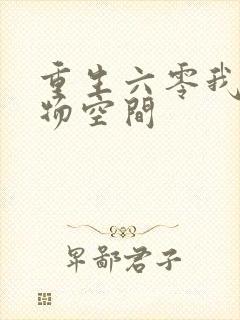 重生六零我
物空間
卑鄙君子